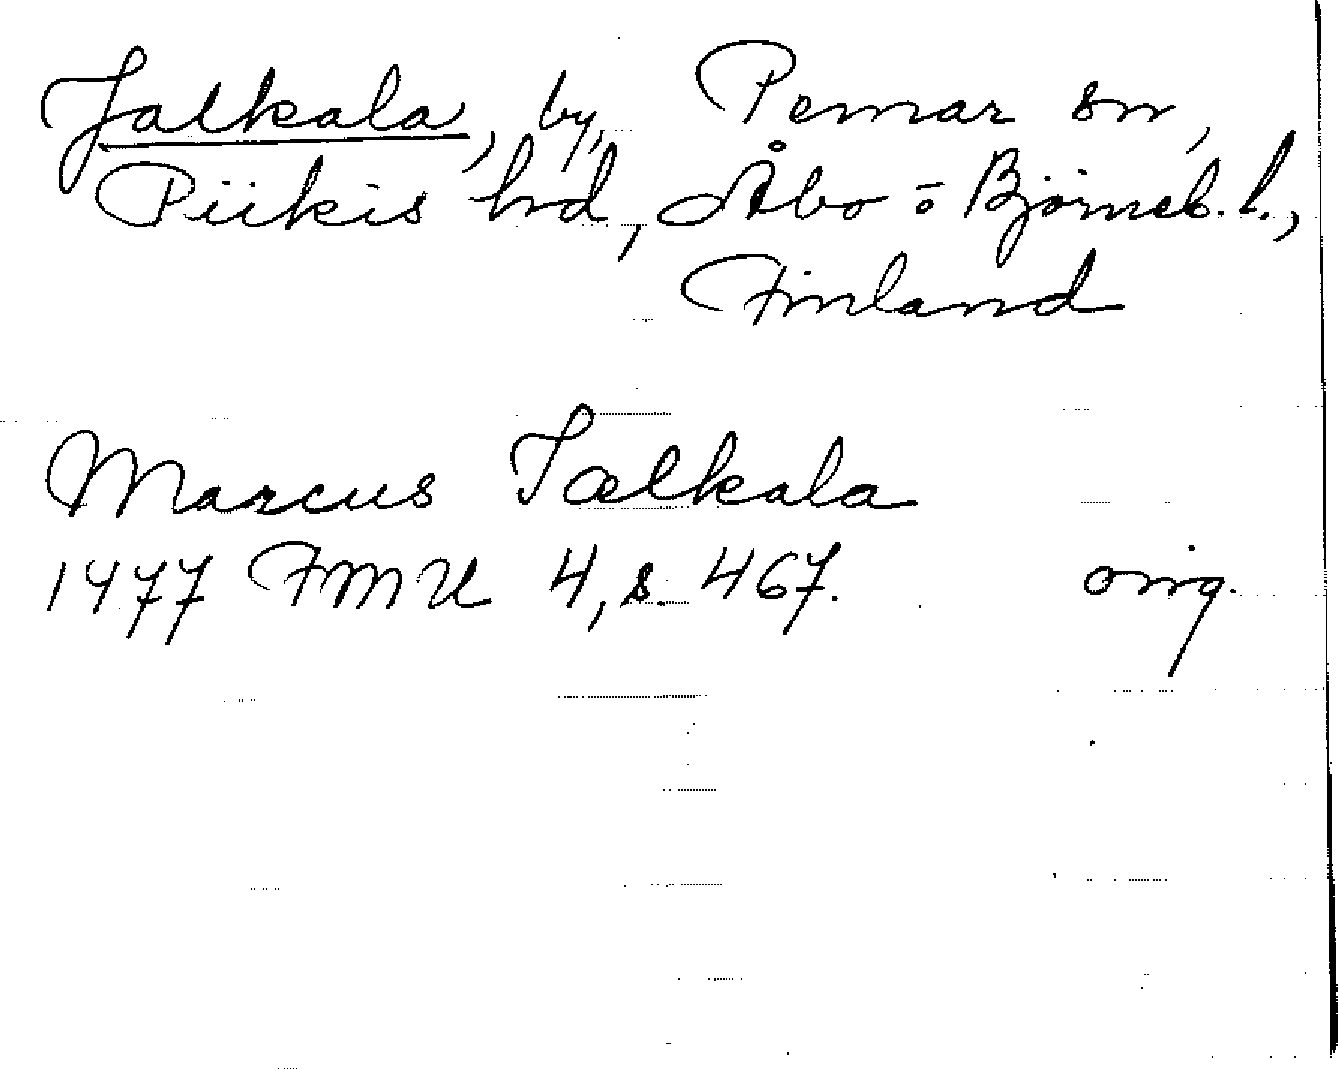 Jalkala, by, Pemar sn,
Piikis hrd, Åbo o Björneb. l.,
Finland
Marcus Jælkala
1477 FMU 4, s. 467. orig.